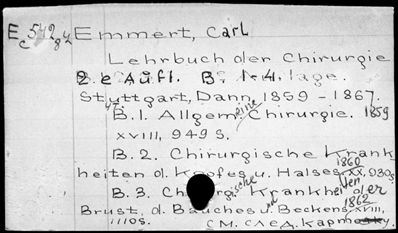 Ec542 84 Emmert, Carl
Lehrbuch der Chirurgie
2 e Aufl. B. 1-4.
Stuttgart, Dann, 1859-1867.
B.1. Allgemeine Chirurgie. 1859
XVIII, 949 S.
B.2. Chirurgische Krank-
heiten d. Kopfes u. Halses. 1860 XX, 930 S.
B.3. Chirurgische Krankheiten der
Brust, d. Bauches u. Beckens. 1862 XVIII,
1110 S. См. след. карточку